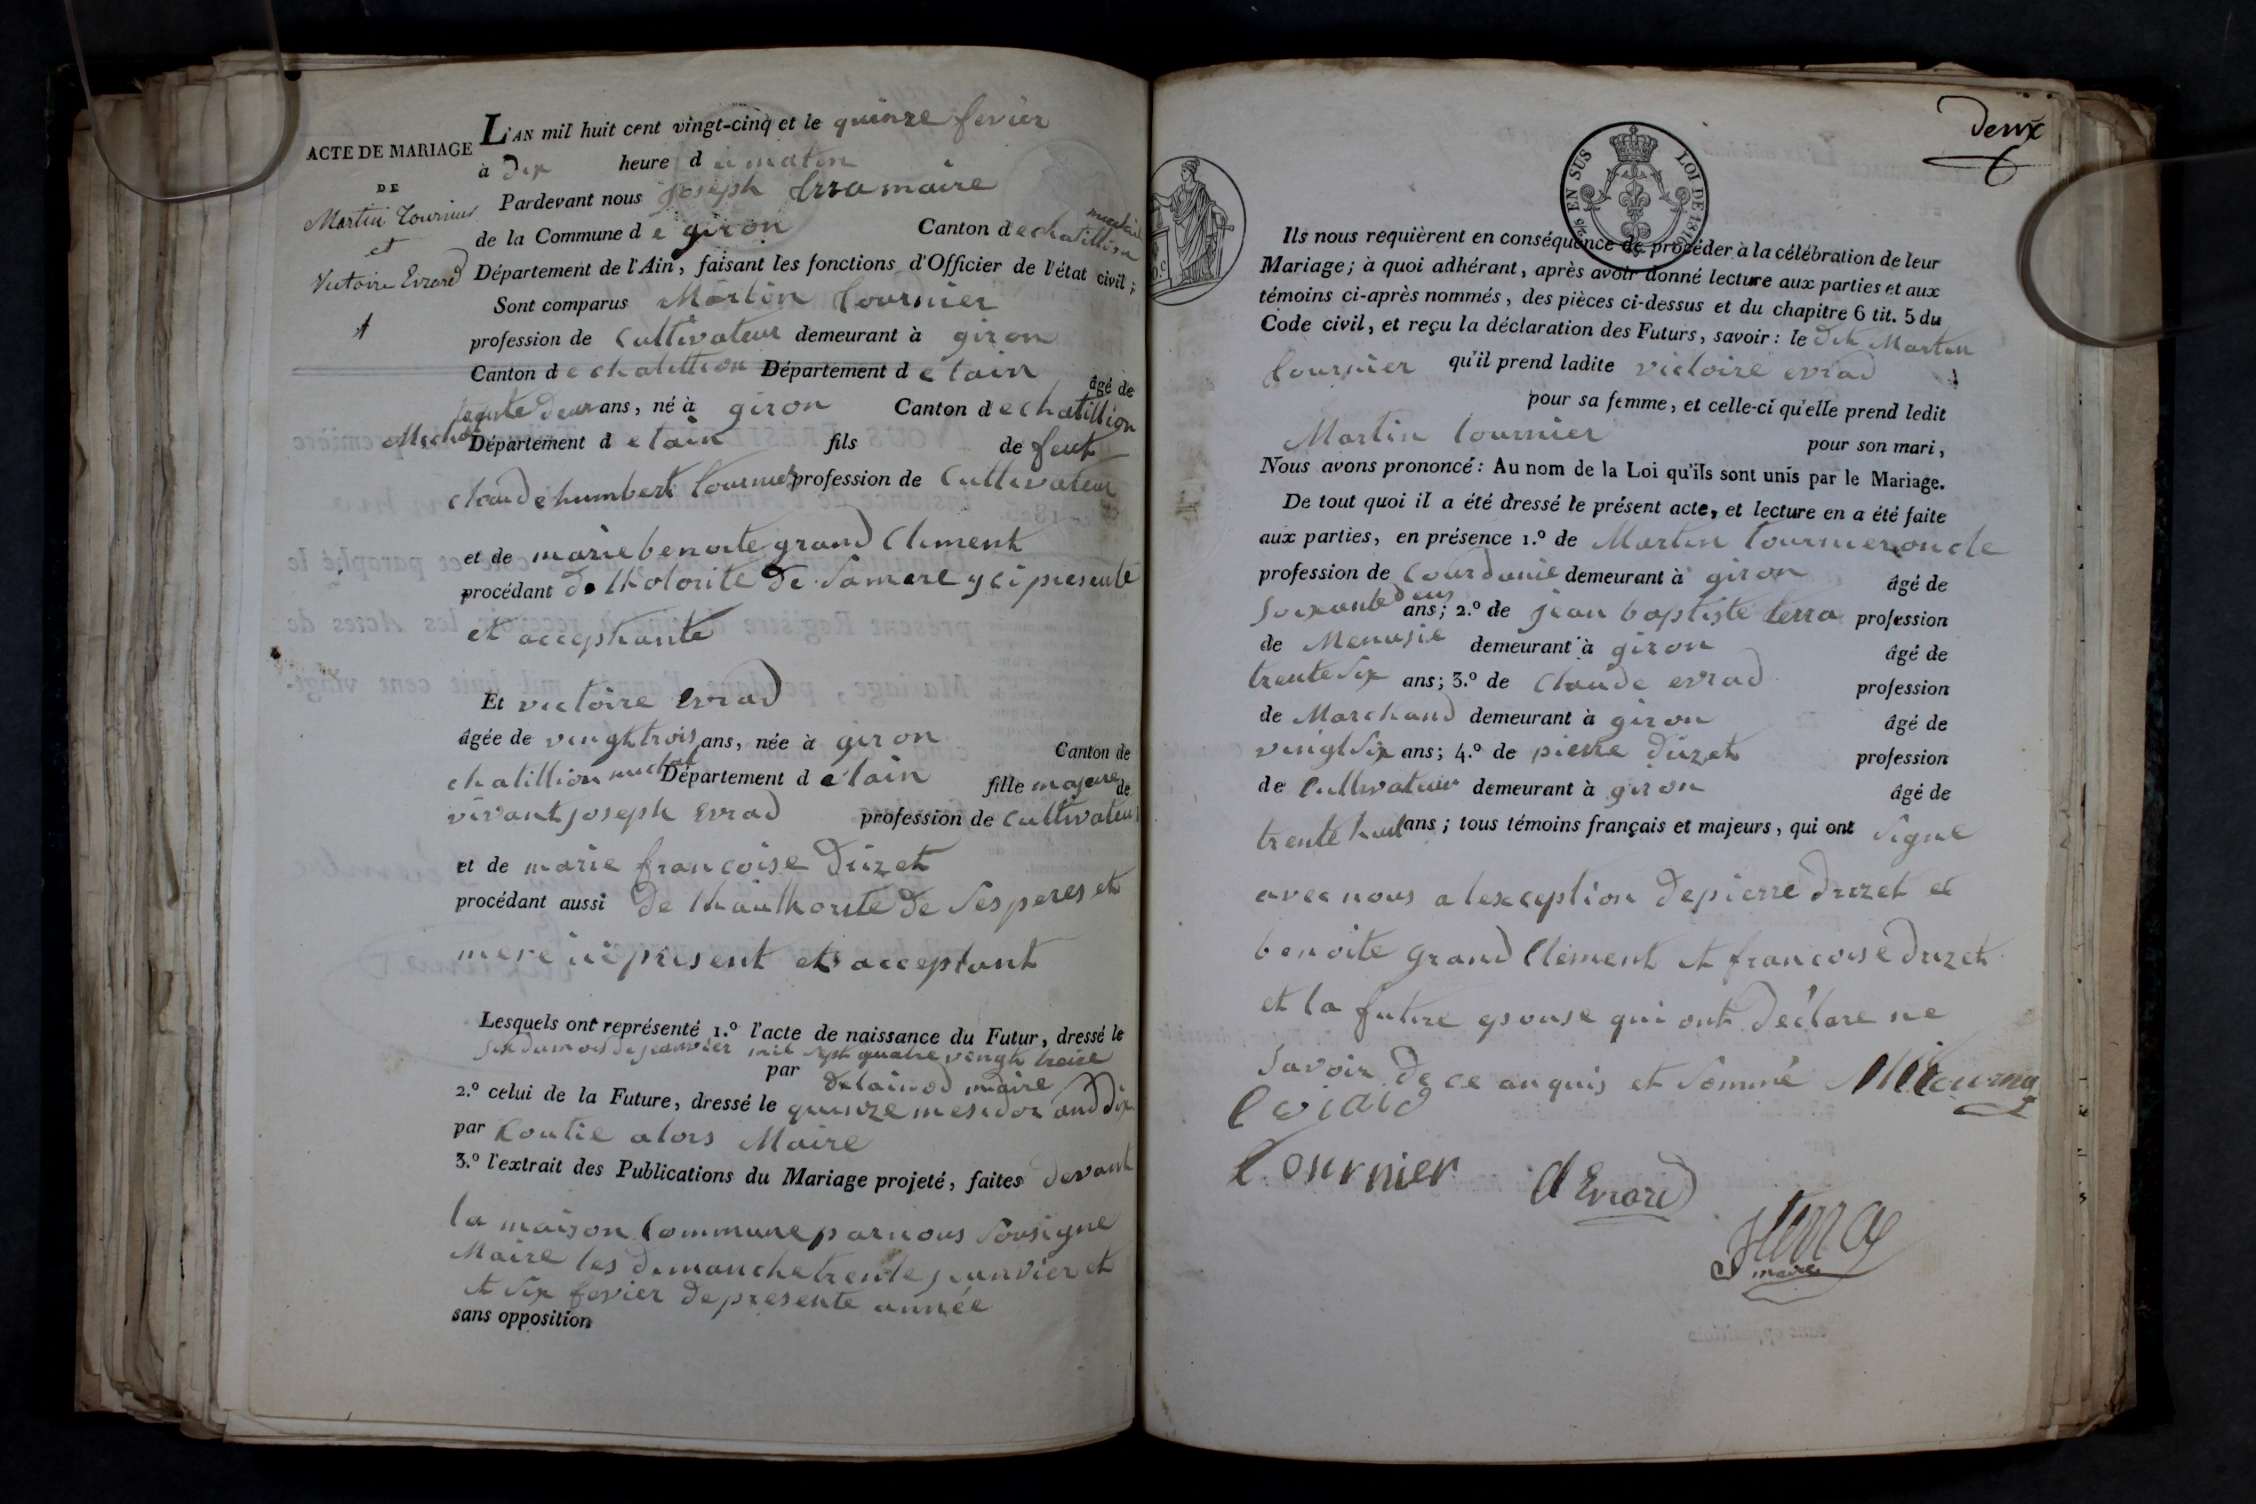 ACTE DE MARIAGE
DE
Martin Tournier
et
Victoire Evrard
L'AN mil huit cent vingt-cinq et le quinze fevier
à dix heure d u matin
Pardevant nous joseph maire
de la Commune d e giron Canton d echatillion
Département de l'Ain, faisant les fonctions d'Officier de l'état civil;
Sont comparus Martin tournier
profession de Cultivateur demeurant à giron
Canton d echatillion Département d e lain âgé de
trente deux ans, né à giron Canton d echatillion
Michail Département d e lain fils de feut
claude humbert tournier profession de Cultivateur
et de marie benoite grand Clement
procédant de lhotorité de Samere yci presente
et accephante
Et victoire evrad
âgée de vinght trois ans, née à giron Canton de
chatillion michail Département d e lain fille majeure de
vivant joseph evrad profession de cultivateur
et de marie francoise Druzet
procédant aussi de lhauthorité de Ses peres et
mere ici present et acceptant
Lesquels ont représenté 1.º l'acte de naissance du Futur, dressé le
Six du mois de janvier mil sept quatre vingt treize
par maire
2.º celui de la Future, dressé le quinze mesidor and dix
par Coutié alors Maire
3.º l'extrait des Publications du Mariage projeté, faites devant
la maison Commune par nous Sousigne
Maire les dimanche trente janvier et
et Six fevier de presente année
sans opposition
deux
5/10 EN SUS
LOI DE 1816
Ils nous requièrent en conséquence de procéder à la célébration de leur
Mariage; à quoi adhérant, après avoir donné lecture aux parties et aux
témoins ci-après nommés, des pièces ci-dessus et du chapitre 6 tit. 5 du
Code civil, et reçu la déclaration des Futurs, savoir: le dit Martin
tournier qu'il prend ladite victoire evrad
pour sa femme, et celle-ci qu'elle prend ledit
Martin tournier pour son mari,
Nous avons prononcé: Au nom de la Loi qu'ils sont unis par le Mariage.
De tout quoi il a été dressé le présent acte, et lecture en a été faite
aux parties, en présence 1.º de Martin tournier oncle
profession de Courdanié demeurant à giron âgé de
Soixante deux ans; 2.º de jean baptiste terra profession
de Menusié demeurant à giron âgé de
trente Six ans; 3.º de Claude evrad profession
de Marchand demeurant à giron âgé de
vingt Six ans; 4.º de pierre Druzet profession
de Cultivateur demeurant à giron âgé de
trente huit ans; tous témoins français et majeurs, qui ont Signé
avec nous a lexception de pierre druzet et
benoite grand Clement et francoise druzet
et la future epouse qui ont déclare ne
Savoir de ce anquis et Sommé
tournier d Evrard
J Terra
maire